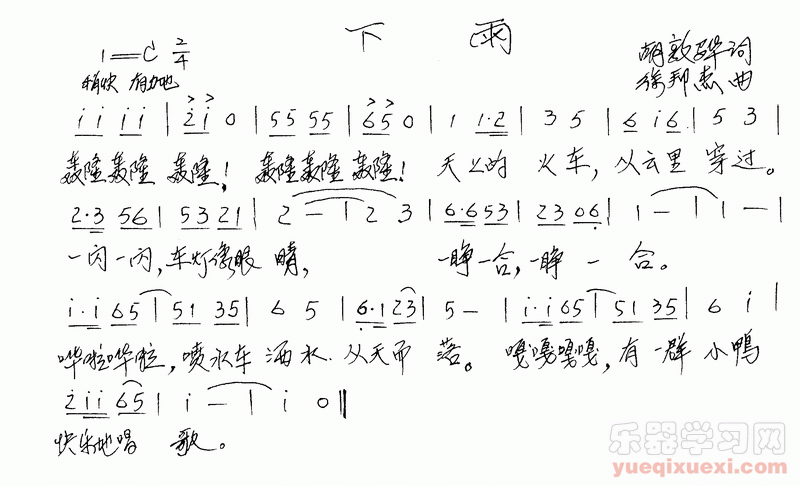 下 雨
1=C 2/4
稍快 有力地
胡敦骅词
徐邦杰曲
i i i i | 2 i 0 | 5 5 5 5 | 6 5 0 | 1 1·2 | 3 5 | 6 i 6 | 5 3 |
轰隆轰隆 轰隆! 轰隆轰隆 轰隆! 天上的 火车, 从云里 穿过。
2·3 5 6 | 5 3 2 1 | 2 – | 2 3 | 6·6 5 3 | 2 3 0 6 | 1 – | 1 – |
一闪一闪, 车灯像眼 睛, 一睁一合, 一睁 一 合。
i·i 6 5 | 5 1 3 5 | 6 5 | 6·1 2 3 | 5 – | i·i 6 5 | 5 1 3 5 | 6 i |
哗啦哗啦, 喷水车 洒水. 从天而 落。 嘎嘎嘎嘎, 有一群 小鸭
2 i i 6 5 | i – | i 0 ‖
快乐地唱 歌。
乐器学习网
yueqixuexi.com